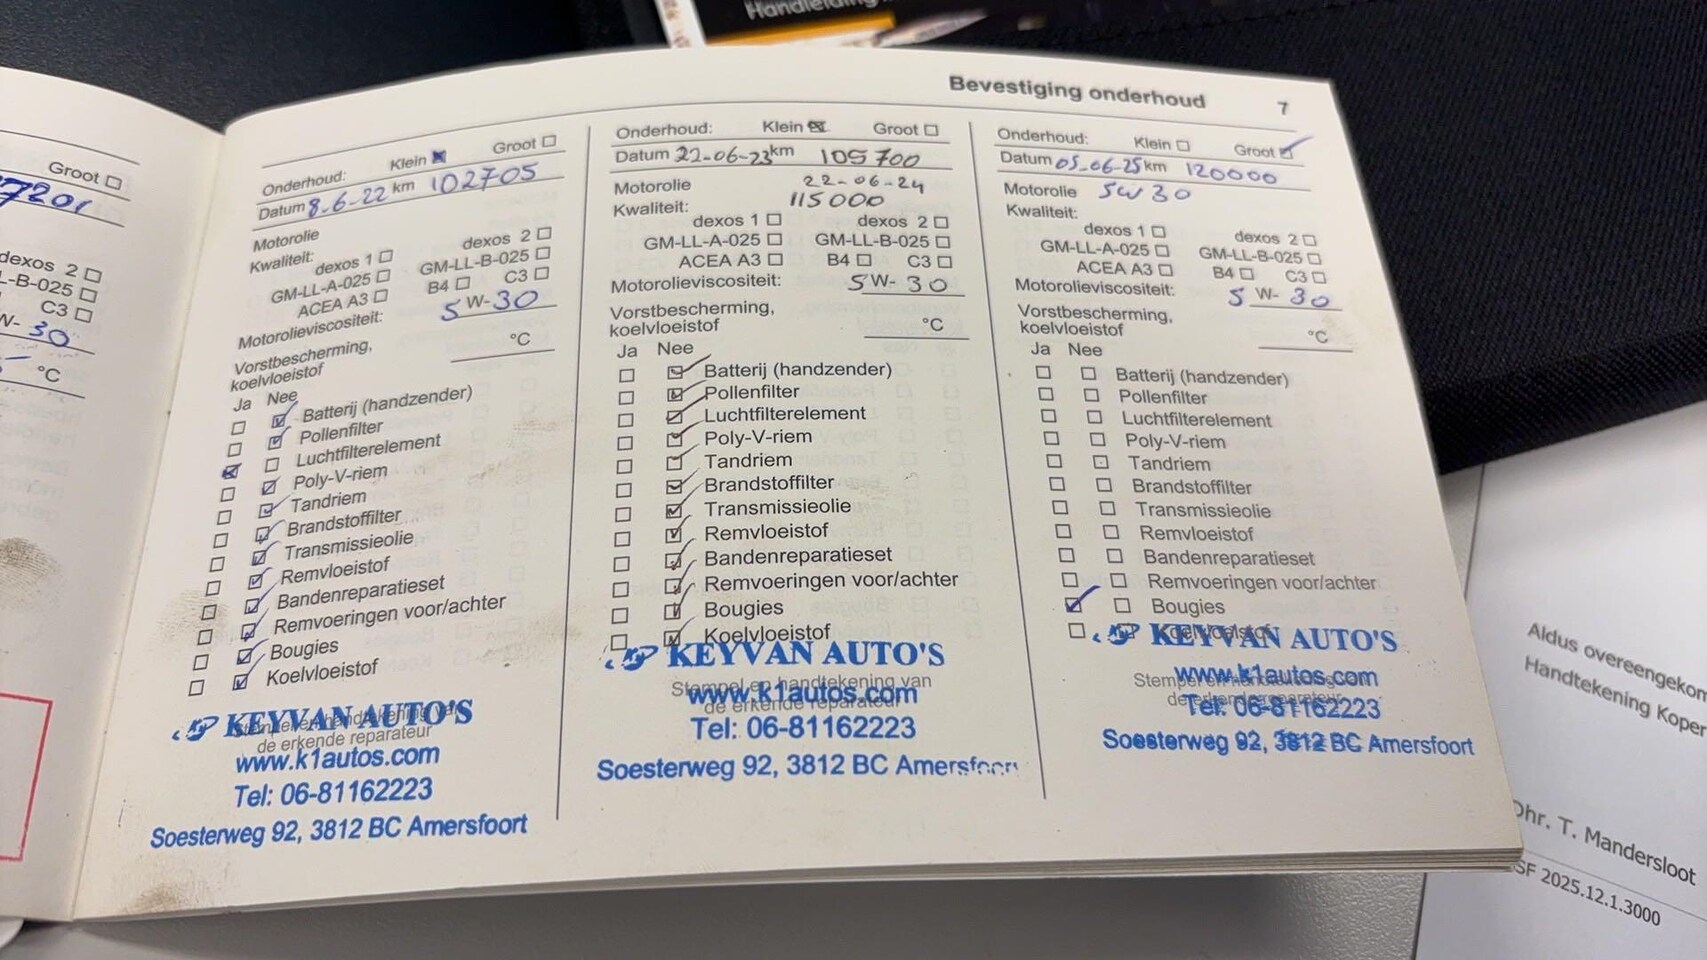 Handleiding
Bevestiging onderhoud 7
Groot
dexos 2
L-B-025
C3
W- 30
°C
Onderhoud: Klein Groot
Datum 8-6-22 km 102705
Motorolie
Kwaliteit:
dexos 1 dexos 2
GM-LL-A-025 GM-LL-B-025
ACEA A3 B4 C3
Motorolieviscositeit: 5 W- 30
Vorstbescherming,
koelvloeistof °C
Ja Nee
Batterij (handzender)
Pollenfilter
Luchtfilterelement
Poly-V-riem
Tandriem
Brandstoffilter
Transmissieolie
Remvloeistof
Bandenreparatieset
Remvoeringen voor/achter
Bougies
Koelvloeistof
KEYVAN AUTO'S
Stempel en handtekening van
de erkende reparateur
www.k1autos.com
Tel: 06-81162223
Soesterweg 92, 3812 BC Amersfoort
Onderhoud: Klein Groot
Datum 22-06-23 km 105700
Motorolie 22-06-24
Kwaliteit: 115000
dexos 1 dexos 2
GM-LL-A-025 GM-LL-B-025
ACEA A3 B4 C3
Motorolieviscositeit: 5 W- 30
Vorstbescherming,
koelvloeistof °C
Ja Nee
Batterij (handzender)
Pollenfilter
Luchtfilterelement
Poly-V-riem
Tandriem
Brandstoffilter
Transmissieolie
Remvloeistof
Bandenreparatieset
Remvoeringen voor/achter
Bougies
Koelvloeistof
KEYVAN AUTO'S
Stempel en handtekening van
www.k1autos.com
de erkende reparateur
Tel: 06-81162223
Soesterweg 92, 3812 BC Amersfoort
Onderhoud: Klein Groot
Datum 05-06-25 km 120000
Motorolie 5W30
Kwaliteit:
dexos 1 dexos 2
GM-LL-A-025 GM-LL-B-025
ACEA A3 B4 C3
Motorolieviscositeit: 5 W- 30
Vorstbescherming,
koelvloeistof °C
Ja Nee
Batterij (handzender)
Pollenfilter
Luchtfilterelement
Poly-V-riem
Tandriem
Brandstoffilter
Transmissieolie
Remvloeistof
Bandenreparatieset
Remvoeringen voor/achter
Bougies
Koelvloeistof
KEYVAN AUTO'S
www.k1autos.com
Stempel en
de erkende reparateur
Tel: 06-81162223
Soesterweg 92, 3812 BC Amersfoort
Aldus overeengekom
Handtekening Koper
Dhr. T. Mandersloot
SF 2025.12.1.3000